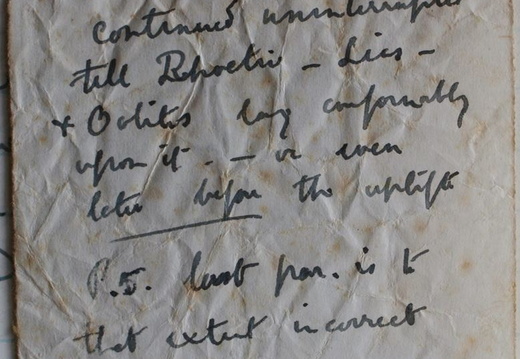 continued uninterrupted
till Rhaetic - Lias -
& Oolites lay conformably
upon it. - or even
later before the uplift
P.S. last par. is to
that extent incorrect